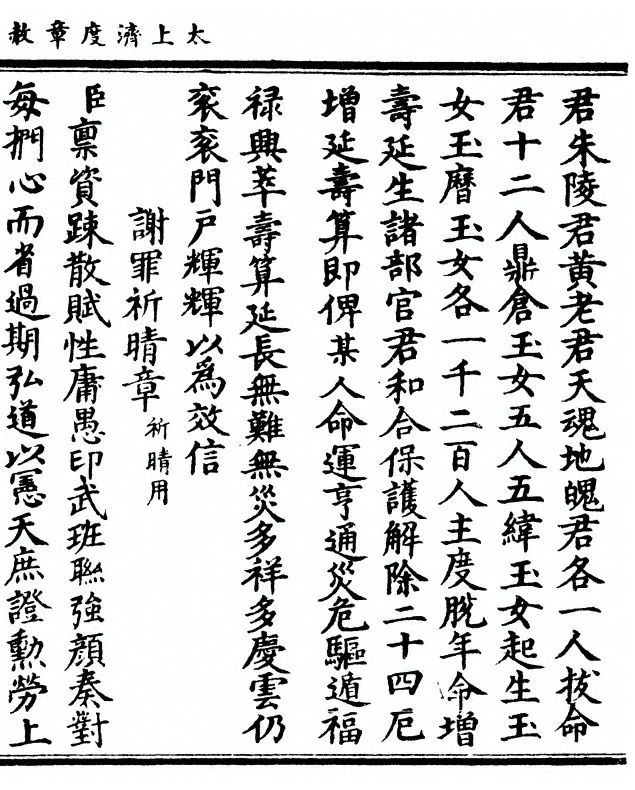 太上濟度章赦
君朱陵君黃老君天魂地魄君各一人拔命
君十二人鼎倉玉女五人五緯玉女起生玉
女玉曆玉女各一千二百人主度脫年命增
壽延生諸部官君和合保護解除二十四厄
增延壽算即俾某人命運亨通災危驅遁福
祿興萃壽算延長無難無災多祥多慶雲仍
衮衮門戶輝輝以為效信
謝罪祈晴章 祈晴用
臣稟資踈散賦性庸愚叩武班聯強顏奏對
每捫心而省過期弘道以憲天庶證勲勞上